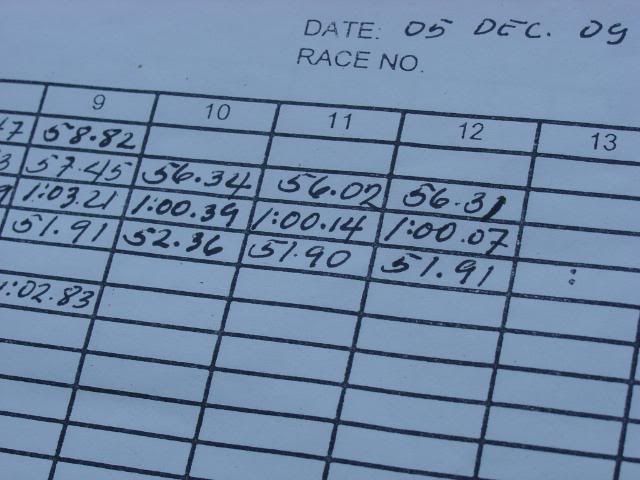 DATE: 05 DEC. 09
RACE NO.
9 10 11 12 13
58.82
57.45 56.34 56.02 56.31
1:03.21 1:00.39 1:00.14 1:00.07
51.91 52.36 51.90 51.91 :
1:02.83